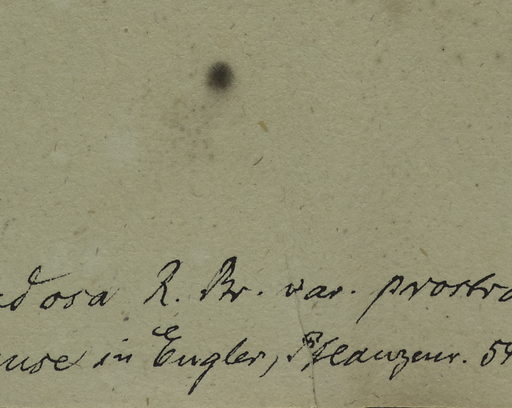 dosa R. Br. var. prostra
ause in Engler, Pflanzenr. 54